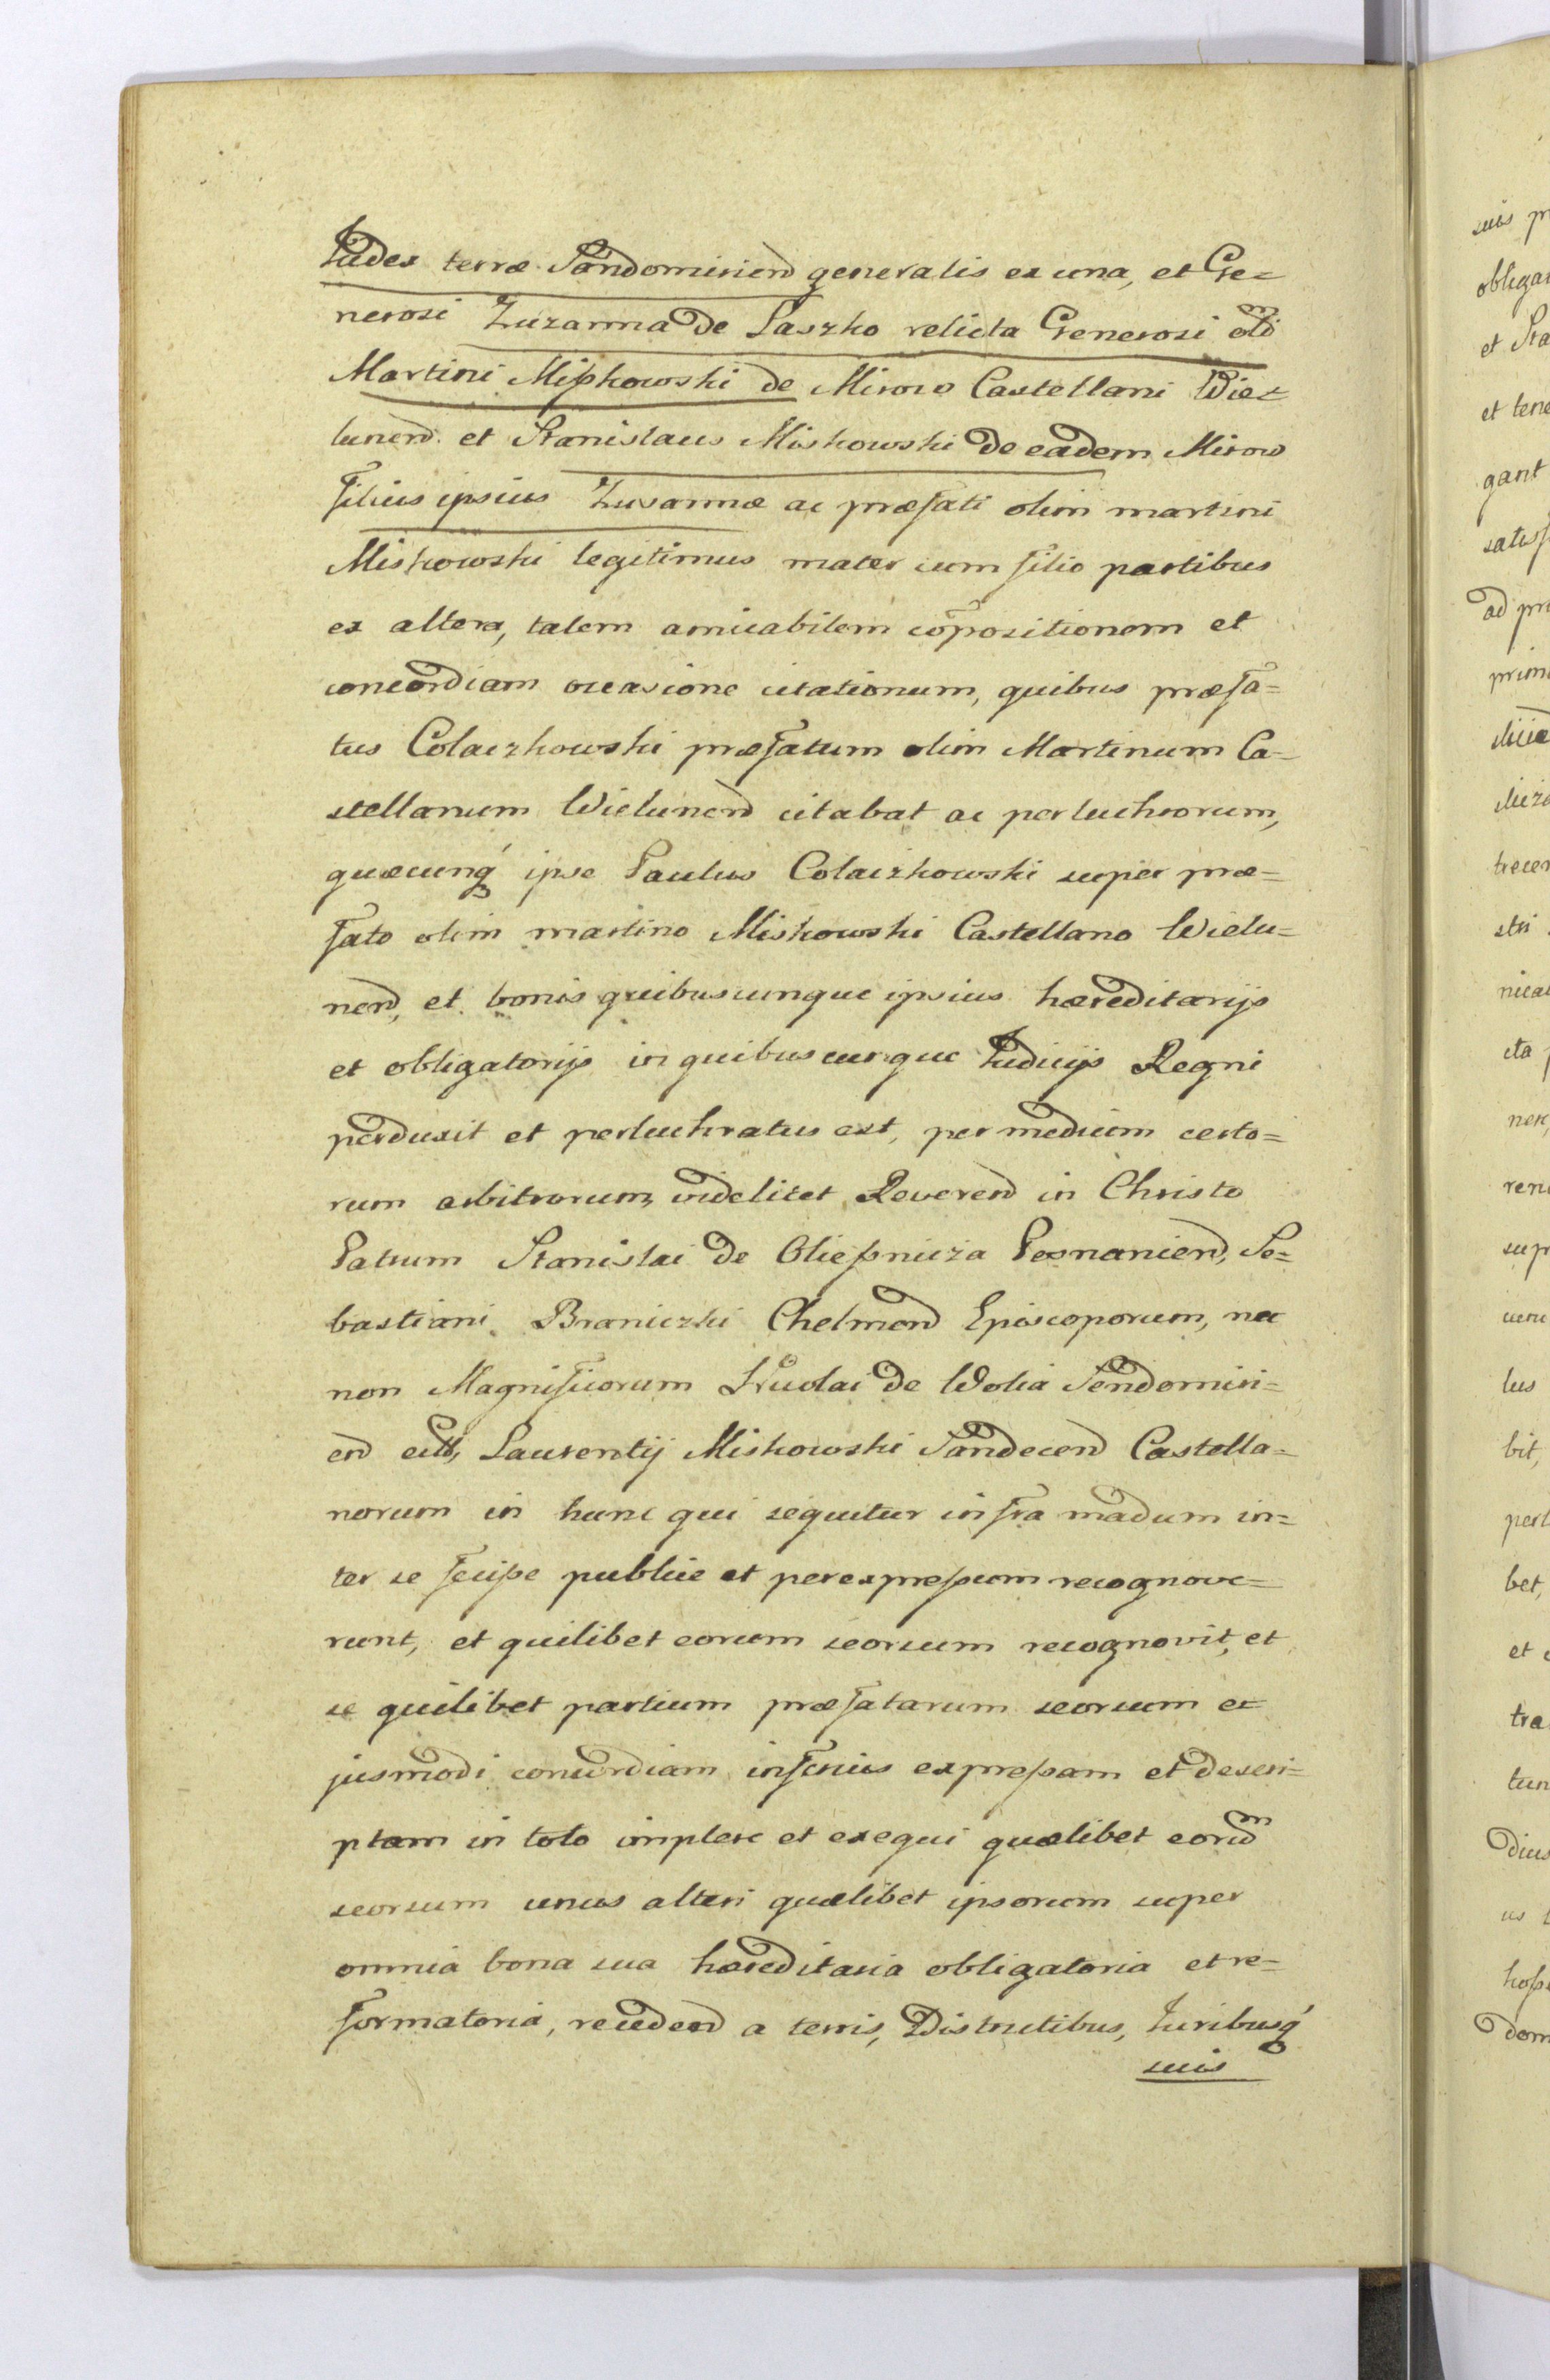 Judex terræ Sandomiriend generalis ex una, et Ge=
nerosi Zuzanna de Paszko relicta Generosi olim
Martini Mißkowski de Mirow Castellani Wie=
lunend. et Stanislaus Miskowski de eadem Mirow
filius ipsius Zusannæ ac præfati olim martini
Miskowski legitimus mater cum filio partibus
ex altera, talem amicabilem cōpositionem et
concordiam occasione citationum, quibus præfa=
tus Colaczkowski præfatum olim Martinum Ca-
stellanum Wielunend citabat ac perluchrorum,
quæcunq́ ipse Paulus Colaczkowski super præ=
fato olim martino Miskowski Castellano Wielu=
nend, et bonis quibuscunque ipsius hæreditarijs
et obligatorijs in quibuscunque Judicijs Regni
perduxit et perluchratus est, per medium certo=
rum arbitrorum, videlicet Reverend in Christo
Patrum Stanislai de Oließnicza Posnaniend, Se=
bastiani Braniczki Chelmend Episcoporum, nec
non Magnificorum Nicolai de Wolia Sendomiri=
end Laurentij Miskowski Sandecend Castella=
norum in hunc qui sequitur infra madum in=
ter se feciße publice et per expreßum recognove=
runt, et quilibet eorum seorsum recognovit, et
se quilibet partium præfatarum seorsum e=
jusmodi concordiam inferius expreßam et descri=
ptam in toto implere et exequi quælibet eorum
seorsum unus alteri quælibet ipsorum super
omnia bona sua hæreditaria obligatoria et re=
formatoria, recedend a terris, Districtibus, Juribusq́
suis